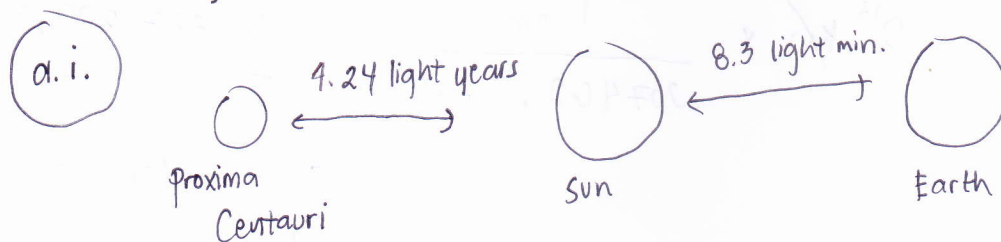 a.i.
4.24 light years
8.3 light min.
proxima
Centauri
Sun
Earth